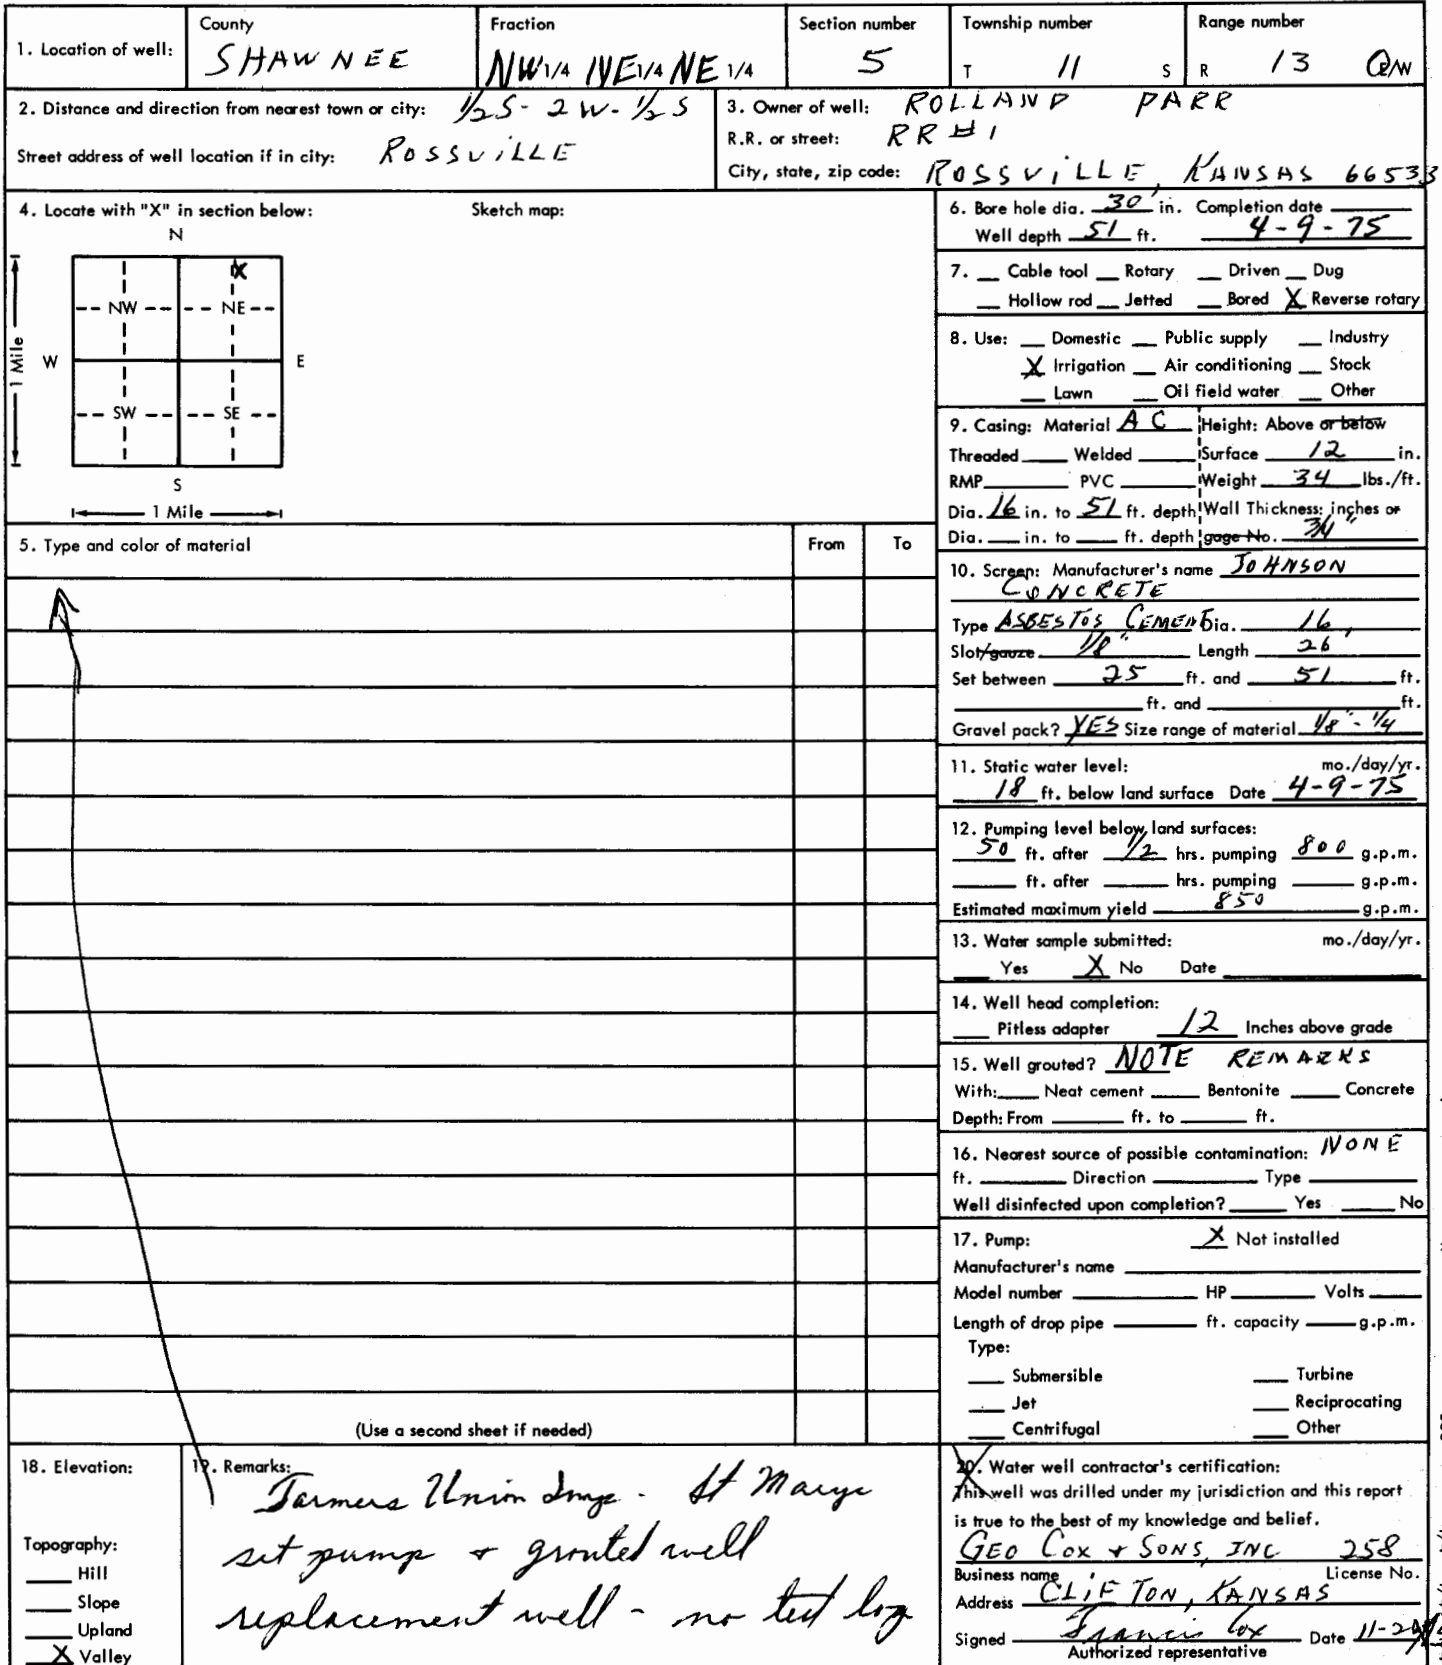 1. Location of well: County SHAWNEE Fraction NW 1/4 NE 1/4 NE 1/4 Section number 5 Township number T 11 S Range number R 13 E/W
2. Distance and direction from nearest town or city: 1/2 S - 2 W - 1/2 S
Street address of well location if in city: ROSSVILLE
3. Owner of well: ROLLAND PARR
R.R. or street: RR #1
City, state, zip code: ROSSVILLE, KANSAS 66533
4. Locate with "X" in section below: Sketch map:
N
X
NW NE
W E
1 Mile
SW SE
S
1 Mile
5. Type and color of material From To
(Use a second sheet if needed)
6. Bore hole dia. 30 in. Completion date
Well depth 51 ft. 4-9-75
7. Cable tool Rotary Driven Dug
Hollow rod Jetted Bored X Reverse rotary
8. Use: Domestic Public supply Industry
X Irrigation Air conditioning Stock
Lawn Oil field water Other
9. Casing: Material A C Height: Above or below
Threaded Welded Surface 12 in.
RMP PVC Weight 34 lbs./ft.
Dia. 16 in. to 51 ft. depth Wall Thickness: inches or
Dia. in. to ft. depth gage No. 3/4"
10. Screen: Manufacturer's name JOHNSON
CONCRETE
Type ASBESTOS CEMENT Dia. 16
Slot/gauze 1/8" Length 26'
Set between 25 ft. and 51 ft.
ft. and ft.
Gravel pack? YES Size range of material 1/8" - 1/4
11. Static water level: mo./day/yr.
18 ft. below land surface Date 4-9-75
12. Pumping level below land surfaces:
50 ft. after 1/2 hrs. pumping 800 g.p.m.
ft. after hrs. pumping g.p.m.
Estimated maximum yield 850 g.p.m.
13. Water sample submitted: mo./day/yr.
Yes X No Date
14. Well head completion:
Pitless adapter 12 Inches above grade
15. Well grouted? NOTE REMARKS
With: Neat cement Bentonite Concrete
Depth: From ft. to ft.
16. Nearest source of possible contamination: NONE
ft. Direction Type
Well disinfected upon completion? Yes No
17. Pump: X Not installed
Manufacturer's name
Model number HP Volts
Length of drop pipe ft. capacity g.p.m.
Type:
Submersible Turbine
Jet Reciprocating
Centrifugal Other
18. Elevation:
Topography:
Hill
Slope
Upland
X Valley
19. Remarks:
Farmers Union Imp. - St Marys
set pump & grouted well
replacement well - no test log
20. Water well contractor's certification:
This well was drilled under my jurisdiction and this report
is true to the best of my knowledge and belief.
GEO COX & SONS, INC 258
Business name License No.
Address CLIFTON, KANSAS
Signed Francis Cox Date 11-
Authorized representative